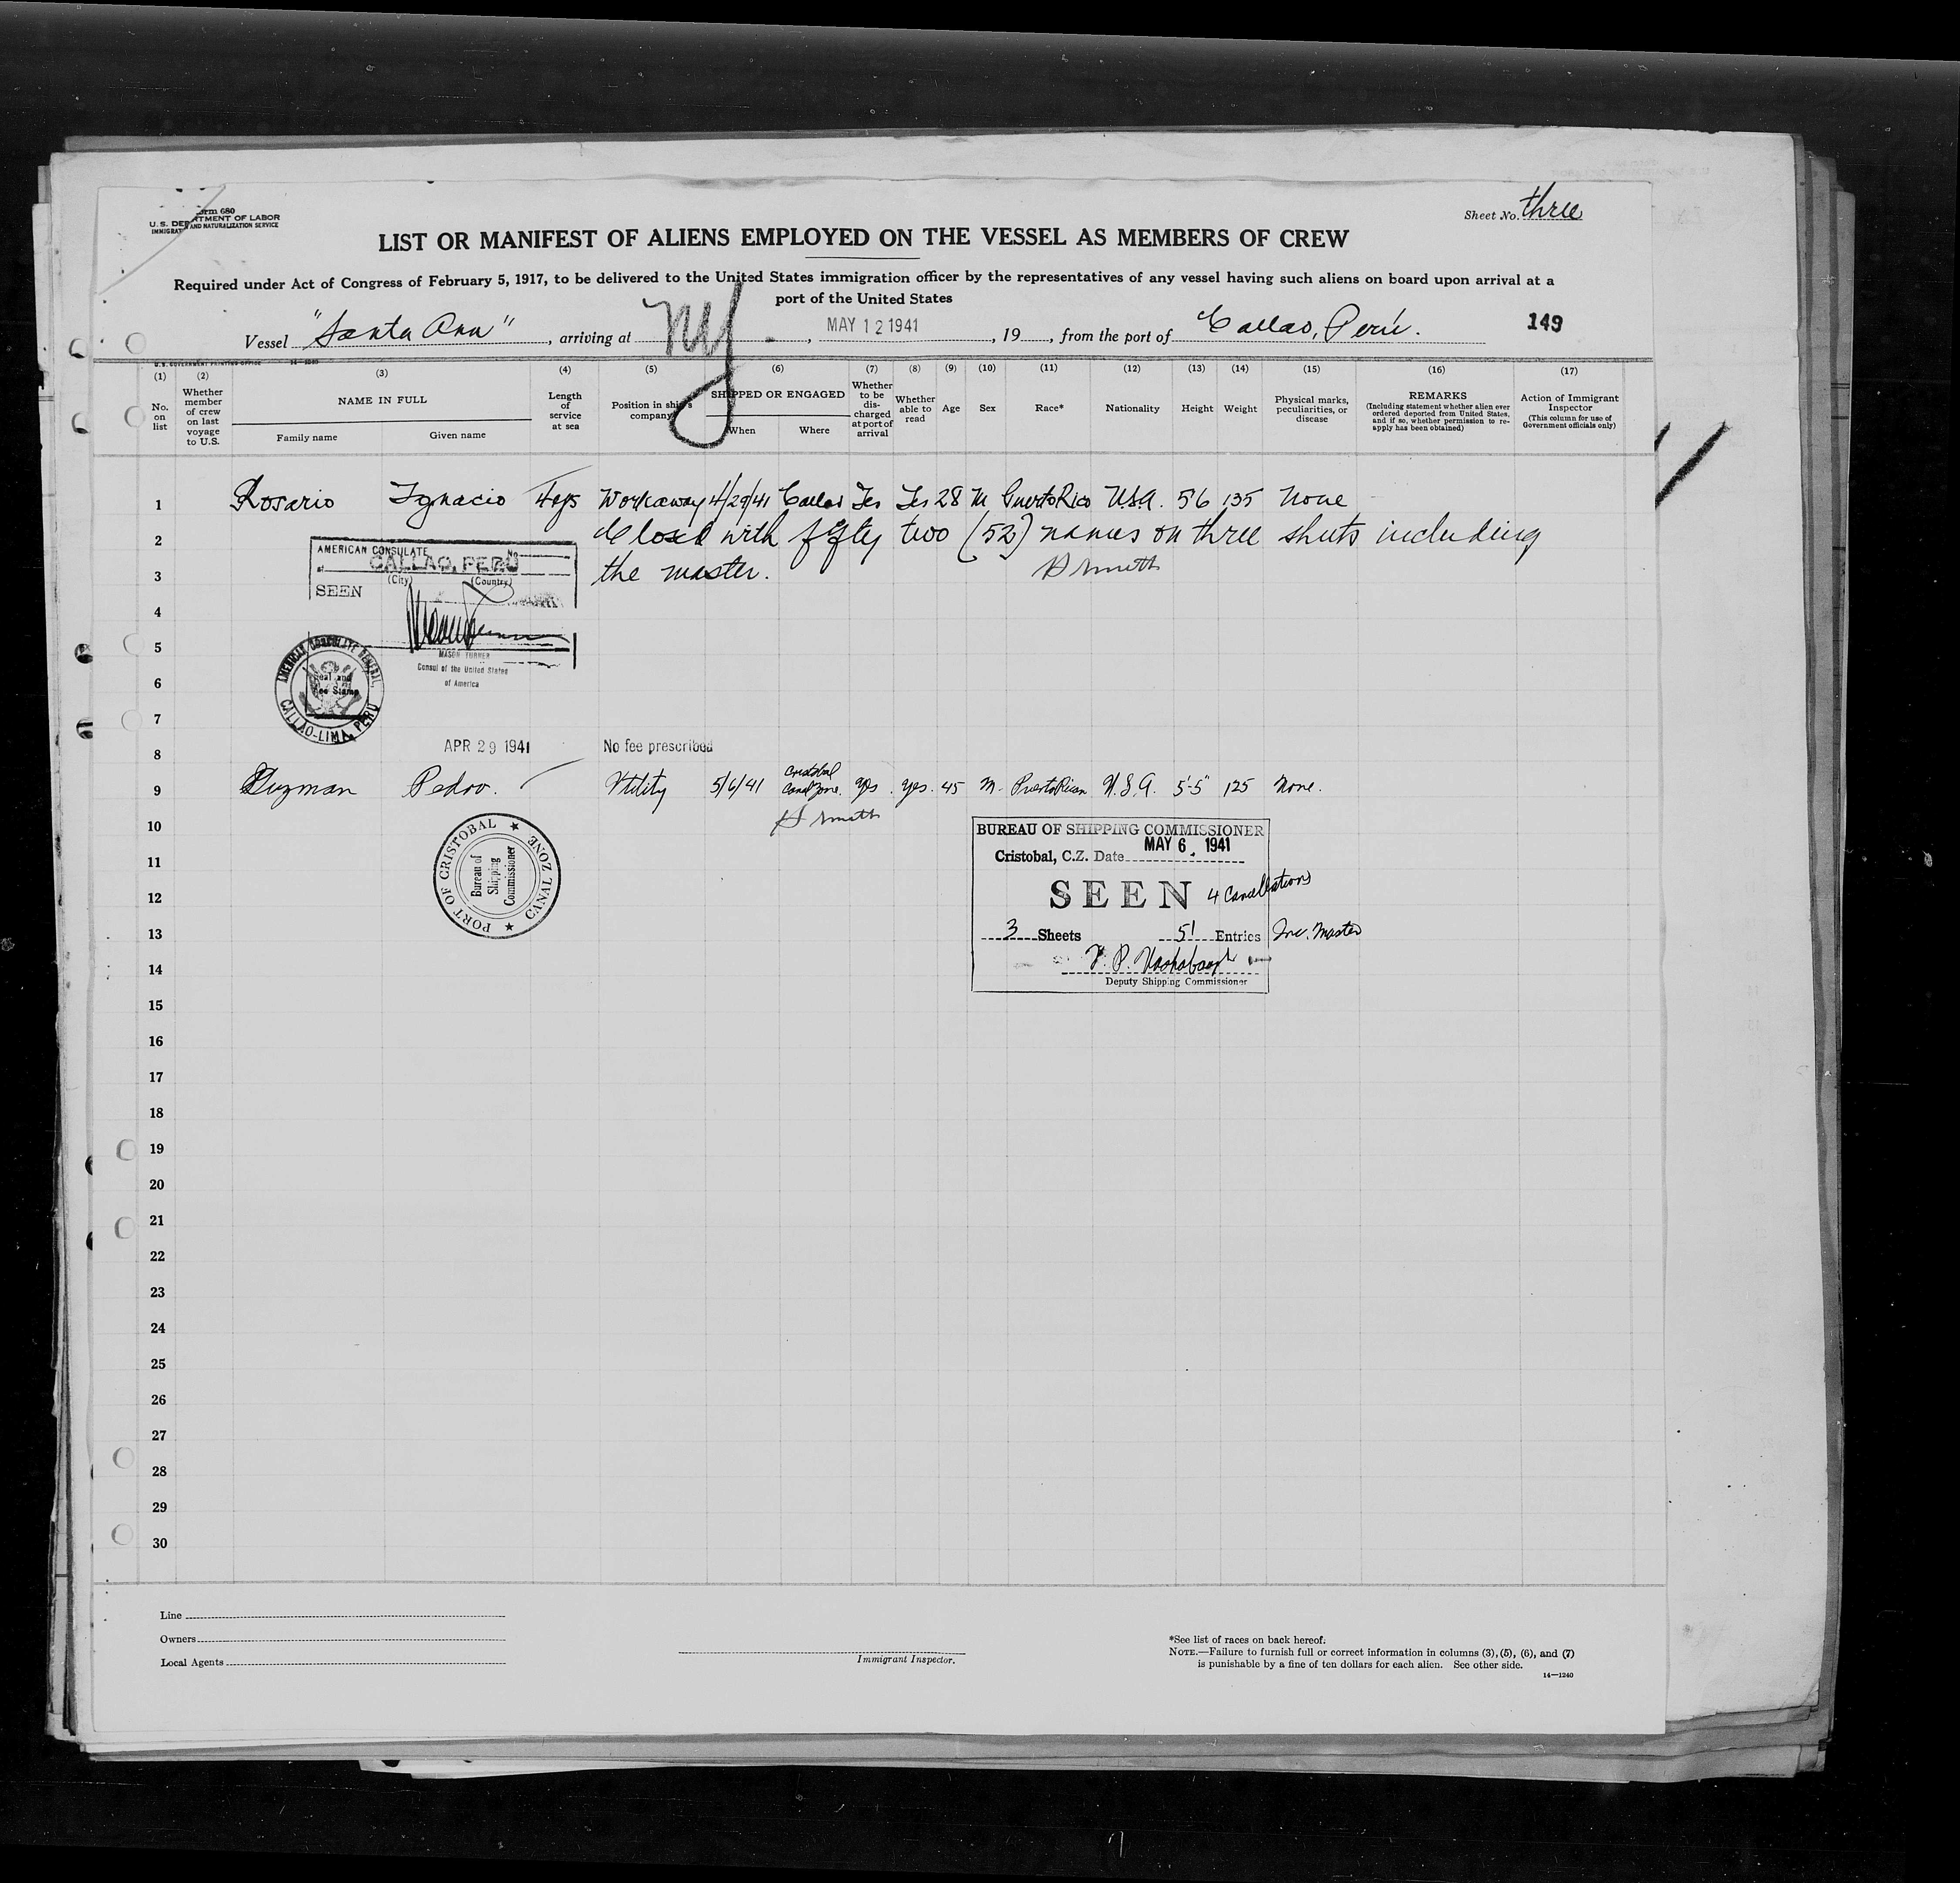 Form 680
U. S. DEPARTMENT OF LABOR
IMMIGRATION AND NATURALIZATION SERVICE
Sheet No. three
LIST OR MANIFEST OF ALIENS EMPLOYED ON THE VESSEL AS MEMBERS OF CREW
Required under Act of Congress of February 5, 1917, to be delivered to the United States immigration officer by the representatives of any vessel having such aliens on board upon arrival at a
port of the United States
Vessel "Santa Ana", arriving at NY, MAY 12 1941, 19, from the port of Callao, Perú. 149
U.S. GOVERNMENT PRINTING OFFICE 14—1240
(1) (2) (3) (4) (5) (6) (7) (8) (9) (10) (11) (12) (13) (14) (15) (16) (17)
No. on list
Whether member of crew on last voyage to U.S.
NAME IN FULL
Family name Given name
Length of service at sea
Position in ship's company
SHIPPED OR ENGAGED
When Where
Whether to be discharged at port of arrival
Whether able to read
Age
Sex
Race*
Nationality
Height
Weight
Physical marks, peculiarities, or disease
REMARKS
(Including statement whether alien ever ordered deported from United States, and if so, whether permission to reapply has been obtained)
Action of Immigrant Inspector
(This column for use of Government officials only)
1 Rosario Ignacio 4 yrs Workaway 4/29/41 Callao Yes Yes 28 M Puerto Rico U.S.A. 5 6 135 None
2 Closed with fifty two (52) names on three sheets including
3 the master. Smith
AMERICAN CONSULATE No
at CALLAO, PERU
(City) (Country)
SEEN
4
5
MASON TURNER
Consul of the United States
of America
AMERICAN CONSULATE GENERAL, CALLAO-LIMA, PERU
Seal and
Fee Stamp
6
7
8 APR 29 1941 No fee prescribed
9 Guzman Pedro. Utility 5/6/41 Cristobal Canal Zone. yes. yes. 45 M. Puerto Rican U.S.A. 5'-5" 125 None.
10 Smith
PORT OF CRISTOBAL ★ CANAL ZONE ★
Bureau of
Shipping
Commissioner
BUREAU OF SHIPPING COMMISSIONER
Cristobal, C.Z. Date MAY 6. 1941
11
12 SEEN 4 Cancellations
13 3 Sheets 51 Entries Inc. Master
14
Deputy Shipping Commissioner
15
16
17
18
19
20
21
22
23
24
25
26
27
28
29
30
Line
Owners
Local Agents
Immigrant Inspector.
*See list of races on back hereof.
NOTE.—Failure to furnish full or correct information in columns (3), (5), (6), and (7)
is punishable by a fine of ten dollars for each alien. See other side.
14—1240